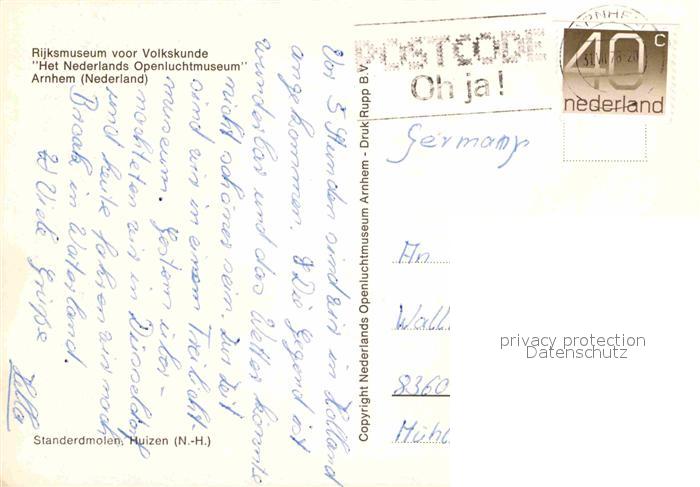 Rijksmuseum voor Volkskunde
"Het Nederlands Openluchtmuseum"
Arnhem (Nederland)
Vor 3 Stunden sind wir in Holland
angekommen. Die Gegend ist
wunderbar und das Wetter könnte
nicht schöner sein. Zur Zeit
sind wir in einem Freilicht-
museum. Gestern über-
nachteten wir in Düsseldorf
und heute fahren wir nach
Broak in Waterland.
Viele Grüße
Standerdmolen, Huizen (N.-H.)
Copyright Nederlands Openluchtmuseum Arnhem - Druk Rupp B.V.
POSTCODE
Oh ja!
ARNHEM
40 c
nederland
Germany
An
Wall
8360
Mühl
privacy protection
Datenschutz